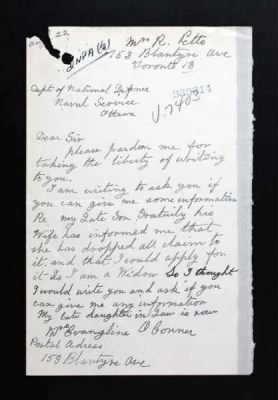 Aug 22
Mrs R. Petto
153 Blantyre Ave
Toronto 13
Dept of National Defence
Naval Service
Ottawa
V.7405
Dear Sir
Please pardon me for
taking the liberty of writing
to you.
I am writing to ask you if
you can give me some information
Re my Late Son Gratuity his
Wife has informed me that
she has dropped all claim to
it, and that I could apply for
it As I am a Widow So I thought
I would write you and ask if you
can give me any information
My late daughter in Law is now
Mrs Evangline O'Conner
Postal Adress
153 Blantyre Ave